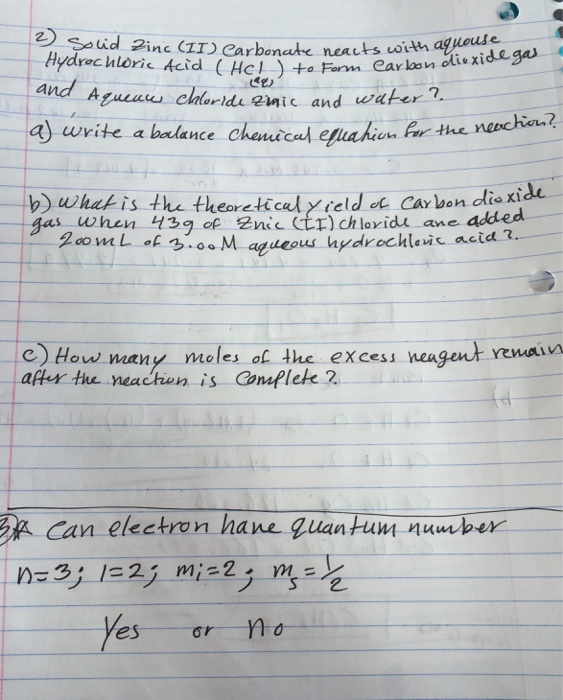 2) Solid Zinc (II) Carbonate reacts with aquouse
Hydrochloric Acid (HCl(aq)) to Form Carbon dioxide gas
and Aqueuus chloride Znic and water?
a) write a balance chemical equation for the reaction?
b) what is the theoretical yield of Carbon dioxide
gas when 43g of Znic (II) chloride are added
200mL of 3.00M aqueous hydrochloric acid?
c) How many moles of the excess reagent remain
after the reaction is Complete?
3 Can electron have quantum number
n=3; l=2; mi=2; ms=1/2
Yes or no